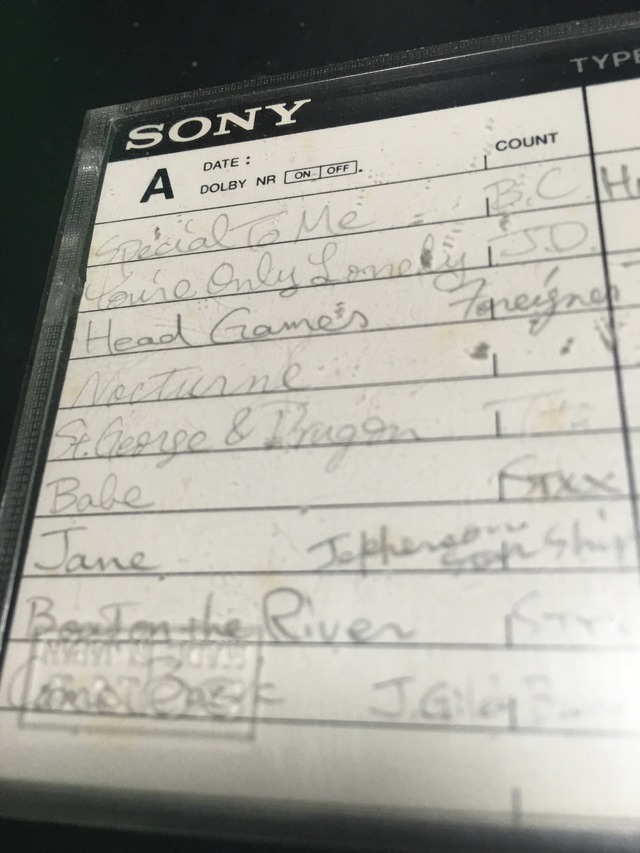 SONY TYPE
A DATE : COUNT
DOLBY NR ON OFF .
Special To Me B.C
You're Only Lonely J.D.
Head Games Foreigner
Nocturne
St. George & Dragon
Babe Styx
Jane Jefferson Starship
Boat on the River Sty
Come Back J. Giley B